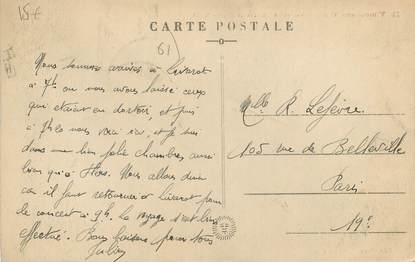 CARTE POSTALE
61
Nous sommes arrivés à Livarot
à 7h où nous avons laissé ceux
qui étaient au dortoir, et puis
à 7h½ nous voici ici, et je suis
dans une bien jolie chambre, aussi
bien qu'à Flers. Nous allons dîner
car il faut retourner à Livarot pour
le concert à 9h. Le voyage s'est bien
effectué. Bons baisers pour tous
Mlle R. Lefèvre
105 rue de Belleville
Paris
19e